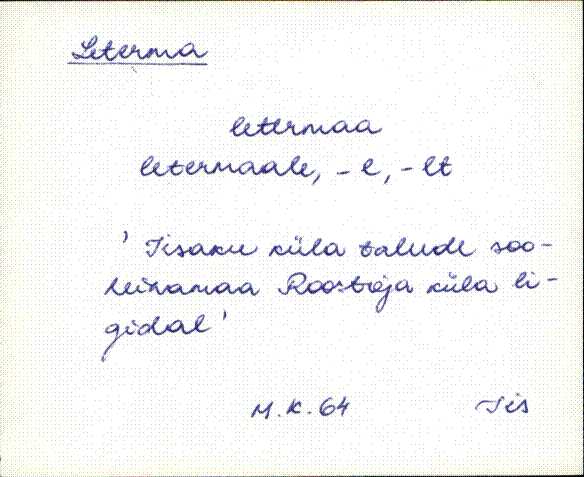 Leterma
letermaa
letermaale, -l, -lt
' Iisaku küla talude soo-
heinamaa Roostoja küla li-
gidal '
M. K. 64 Iis